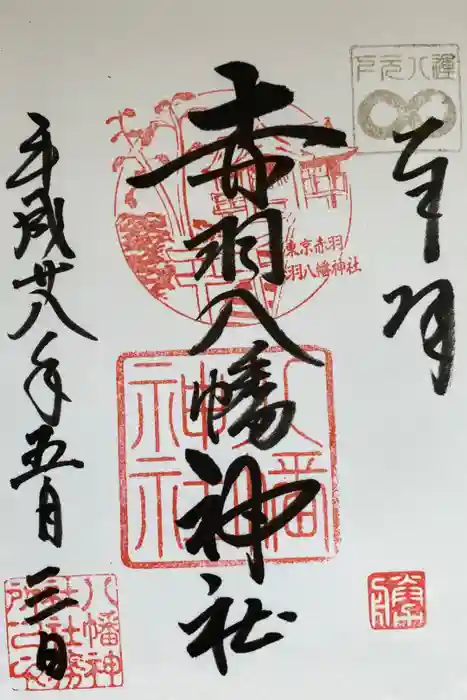 奉拝
赤羽八幡神社
平成廿八年五月三日
東京赤羽
赤羽八幡神社
八幡神社
八幡神社社務所之印